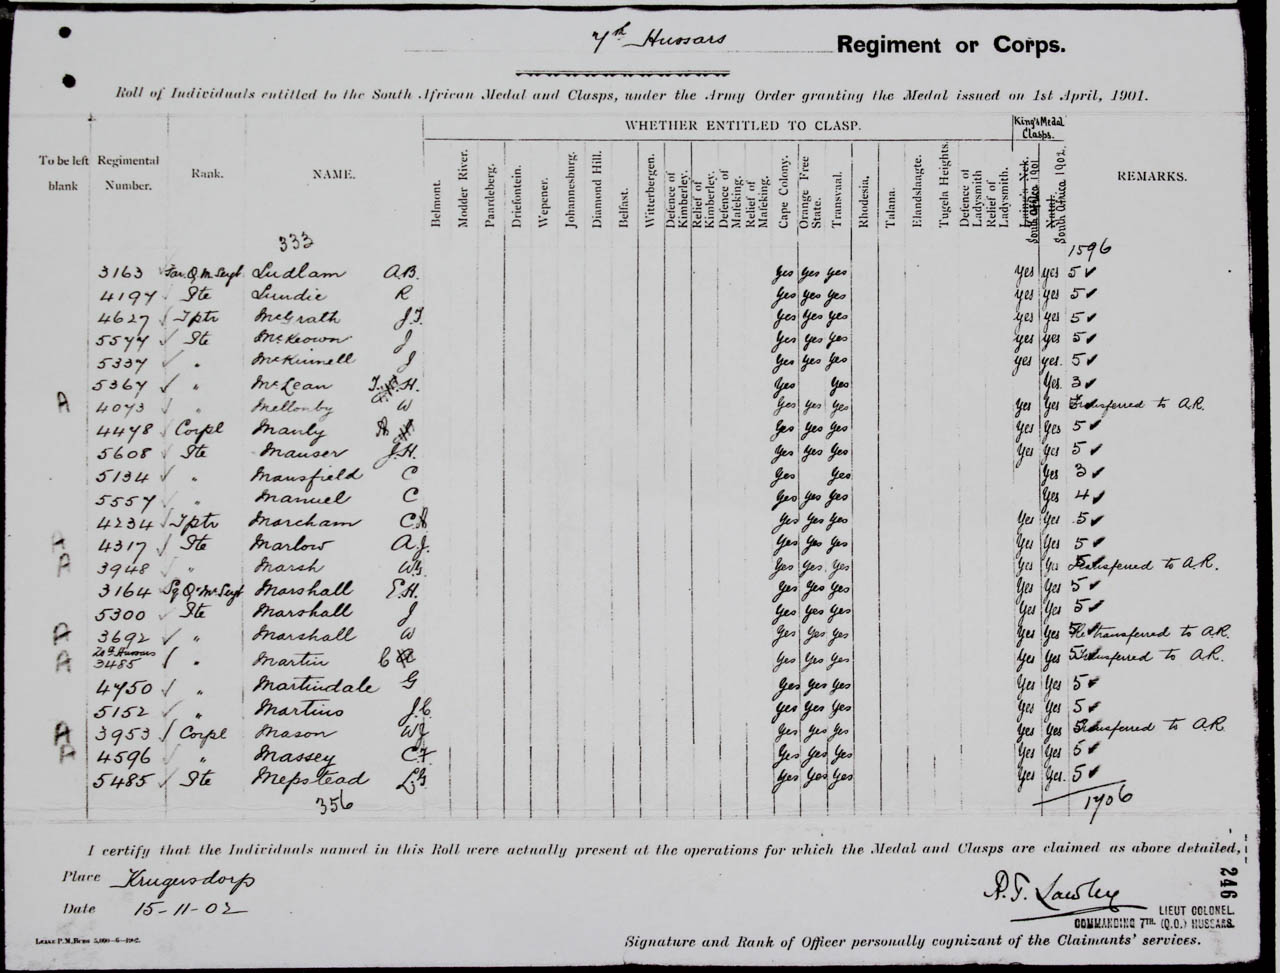 7th Hussars Regiment or Corps.
Roll of Individuals entitled to the South African Medal and Clasps, under the Army Order granting the Medal issued on 1st April, 1901.
WHETHER ENTITLED TO CLASP.
King's Medal Clasps.
To be left blank
Regimental Number.
Rank.
NAME.
Belmont.
Modder River.
Paardeberg.
Driefontein.
Wepener.
Johannesburg.
Diamond Hill.
Belfast.
Witterbergen.
Defence of Kimberley.
Relief of Kimberley.
Defence of Mafeking.
Relief of Mafeking.
Cape Colony.
Orange Free State.
Transvaal.
Rhodesia,
Talana.
Elandslaagte.
Tugela Heights.
Defence of Ladysmith
Relief of Ladysmith.
South Africa 1901
South Africa 1902.
REMARKS.
333 1596
3163 Far. Q. M. Sergt Ludlam A.B. yes yes yes yes yes 5 ✓
4197 Pte Lundie R yes yes yes yes yes 5 ✓
4627 Tptr McGrath J.T. yes yes yes yes yes 5 ✓
5577 Pte McKeown J yes yes yes yes yes 5 ✓
5337 " McKinnell J yes yes yes yes yes. 5 ✓
5367 " McLean H. yes yes yes. 3 ✓
A 4073 " Mellonby W yes yes yes yes yes Transferred to A.R.
4478 Corpl Manly yes yes yes yes yes 5 ✓
5608 Pte Mauser J.H. yes yes yes yes yes 5 ✓
5134 " Mansfield C yes yes yes 3 ✓
5557 " Manuel C yes yes yes yes 4 ✓
4234 Tptr Marcham yes yes yes yes yes 5 ✓
A 4317 Pte Marlow A.J. yes yes yes yes yes 5 ✓
A 3948 " Marsh W.G. yes yes yes yes yes Transferred to A.R.
3164 Sq. Q. Mr Sergt Marshall E.H. yes yes yes yes yes 5 ✓
5300 Pte Marshall J yes yes yes yes yes 5 ✓
A 3692 " Marshall W yes yes yes yes yes Re transferred to A.R.
20th Hussars
A 3485 " Martin C yes yes yes yes yes Transferred to A.R.
4750 " Martindale G yes yes yes yes yes 5 ✓
5152 " Martins J.C. yes yes yes yes yes 5 ✓
A 3953 Corpl Mason WJ yes yes yes yes yes Transferred to A.R.
A 4596 " Massey C.F. yes yes yes yes yes 5 ✓
5485 Pte Mepstead L.G. yes yes yes yes yes. 5 ✓
356 1706
I certify that the Individuals named in this Roll were actually present at the operations for which the Medal and Clasps are claimed as above detailed,
Place Krugersdorp
Date 15-11-02
LIEUT COLONEL.
COMMANDING 7TH. (Q.O.) HUSSARS.
246
Signature and Rank of Officer personally cognizant of the Claimants' services.